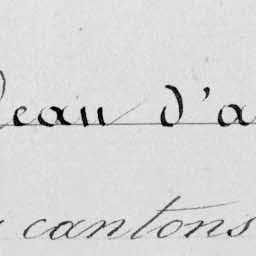 Jean d'a
cantons